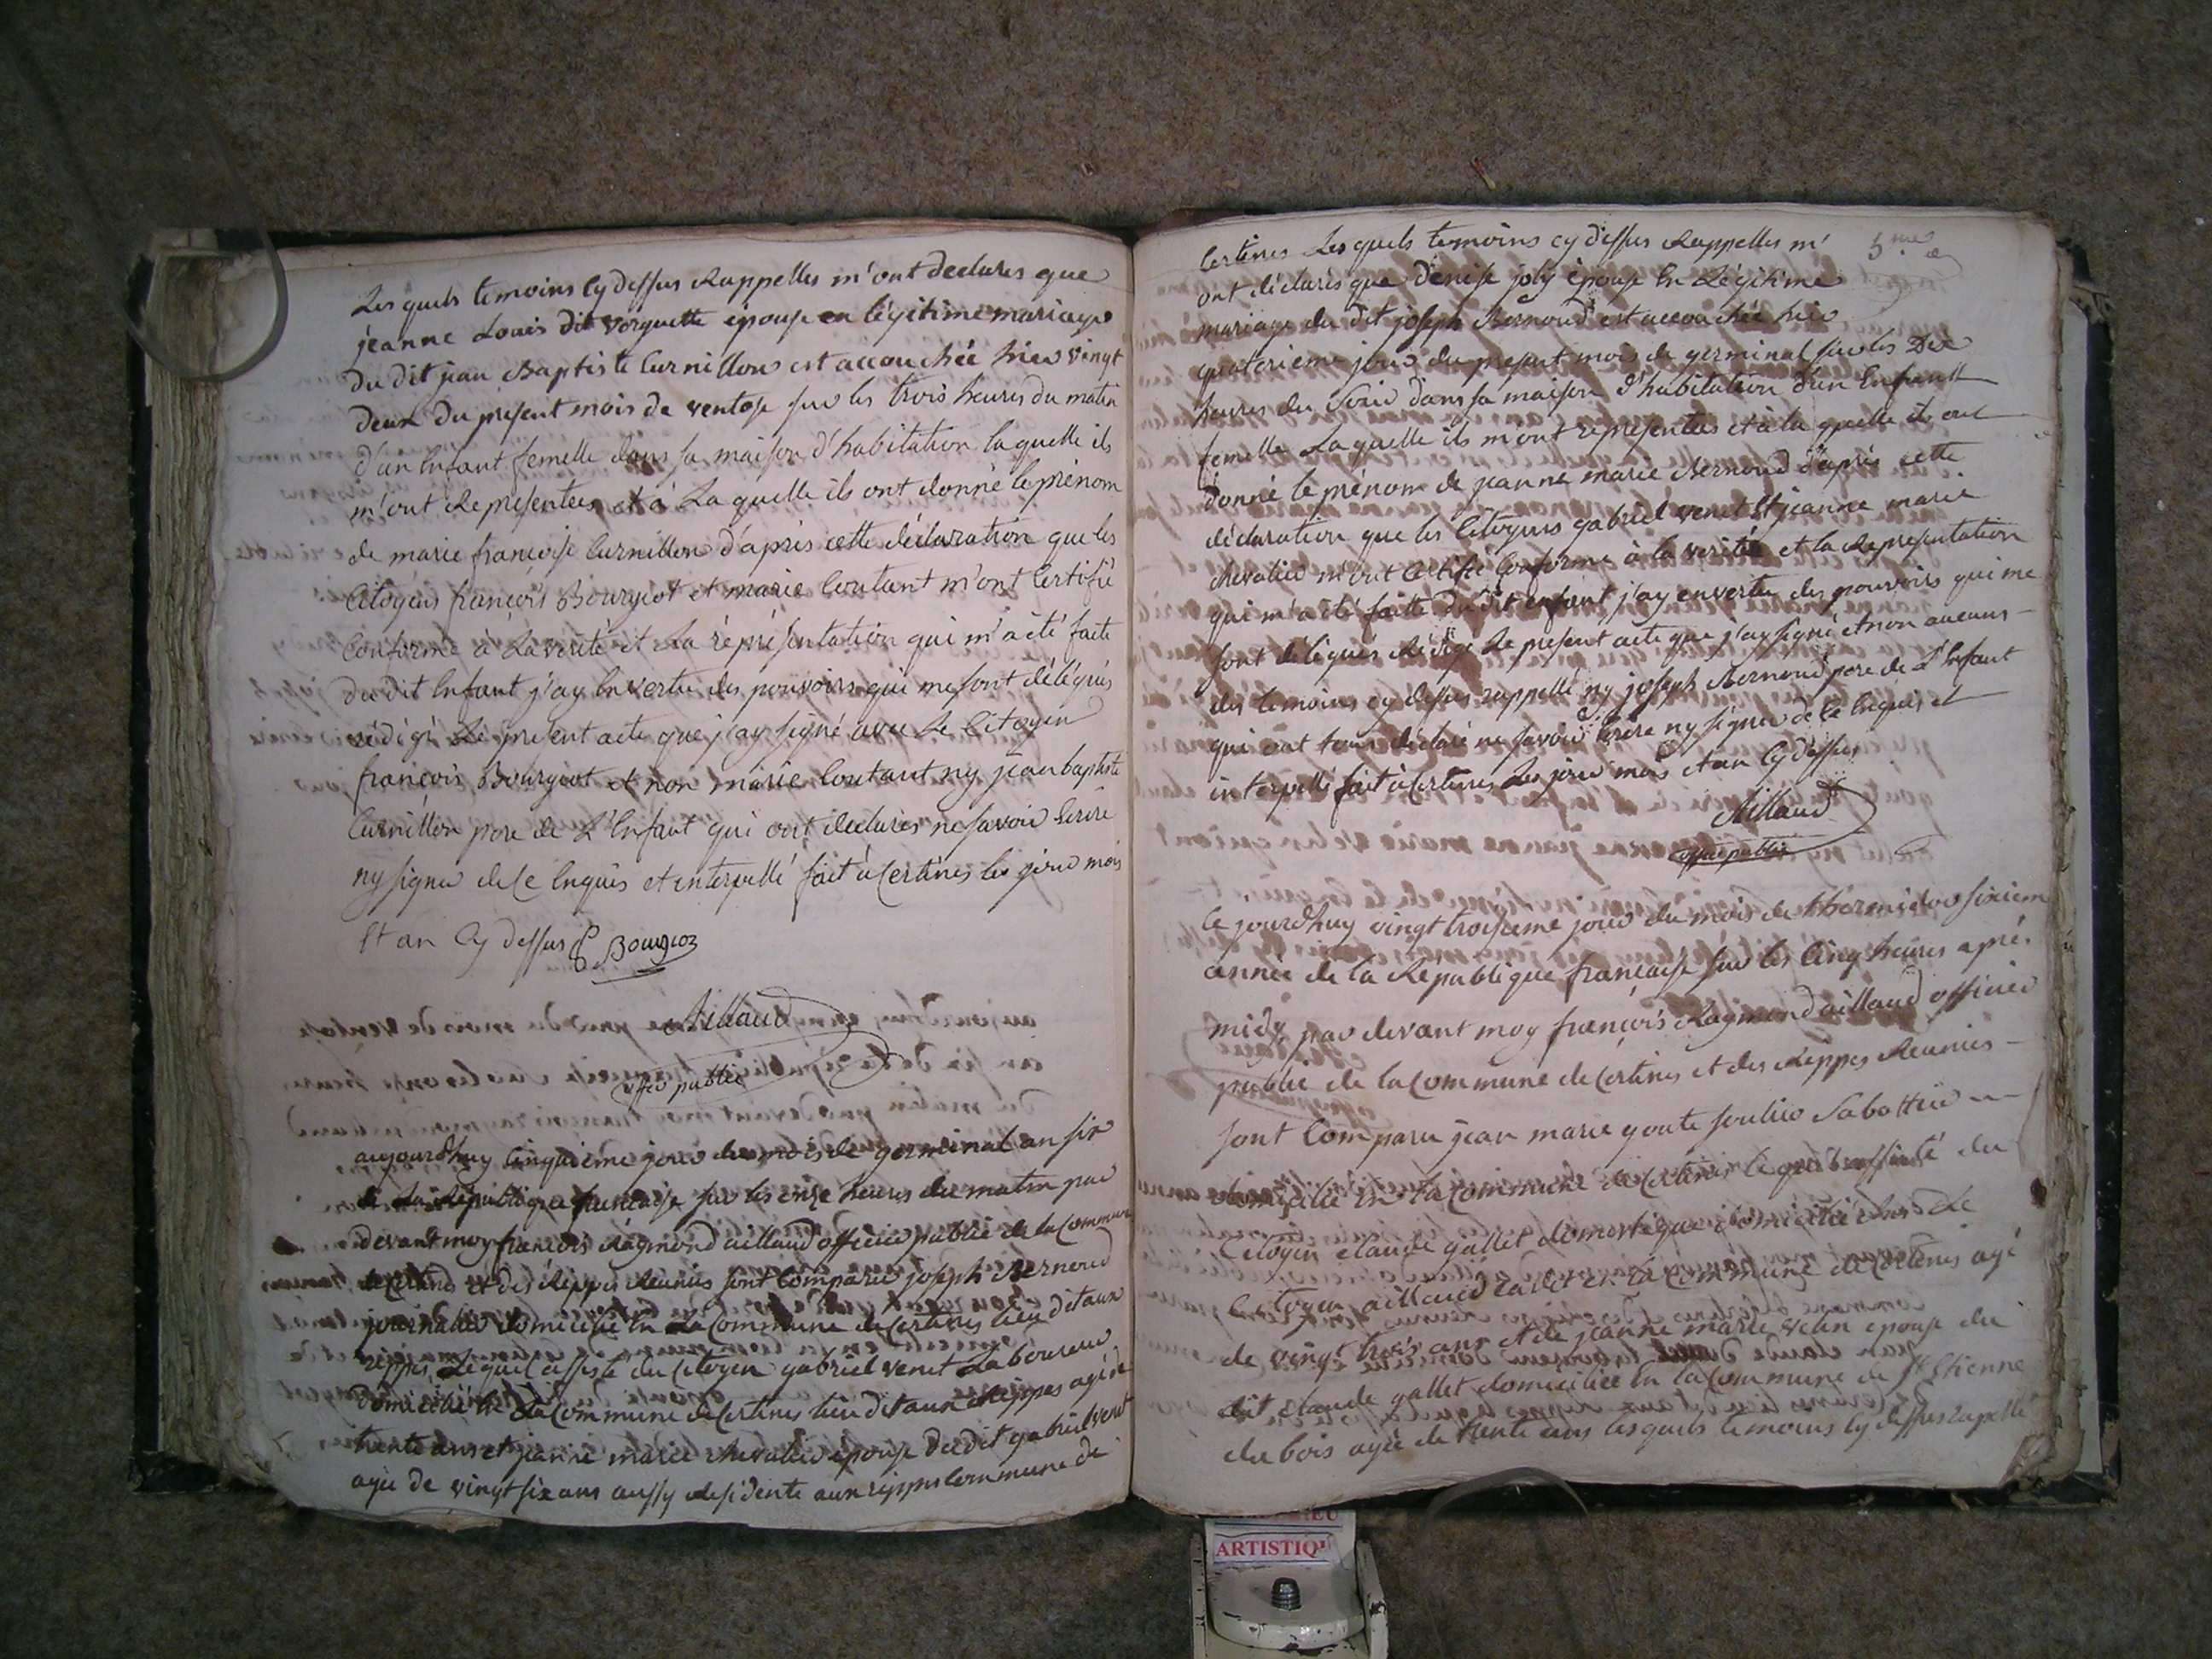 Les quels temoins cy dessus Rappelles m'ont declares que
jéanne Louis dit vorguette epouse en légitime mariage
du dit jean Baptiste Curnillon est accouchée hier vingt
deux du présent mois de ventose sur les trois heures du matin
d'un Enfant femelle dans sa maison d'habitation laquelle ils
m'ont Representées et à Laquelle ils ont donné le prénom
de marie françoise Curnillon d'après cette déclaration que les
Citoyens françois Bourgeot et marie Coutant m'ont Certifié
Conforme à La verité et La représentation qui m'a été faite
du dit Enfant j'ay En vertu des pouvoirs qui me sont délégués
rédigé Le present acte que j'ay signé avec Le Citoyen
françois Bourgeot et non marie Coutant ny jean baptiste
Curnillon pere de L'Enfant qui ont declares ne savoir Ecrire
ny signer de Ce Enquis et interpellé fait à Certines les jour mois
Et an Cy dessus Bourgioz
Aillaud
offier public
aujourdhuy Cinquieme jour du mois de germinal an six
de La Republique française sur les onze heures du matin par
devant moy francois Raymond aillaud officier public de la Commune
de Certines et des Reppes Reunies sont Comparu joseph Bernoud
journalier domicilié En La Commune de Certines lieu dit aux
reppes Lequel assisté du Citoyen gabriel venet Laboureur
domicilié En La Commune de Certines lieu dit aux Reppes agé de
trente ans et jeanne marie chevalier epouse du dit gabriel venet
agée de vingt six ans aussy Residente aux repps Commune de
Certines Les quels temoins cy dessus Rappelles m' 5me
ont déclarés que denise joly épouse En Légitime
mariage du dit joseph Bernoud est accouchée hier
quatorieme jour du present mois de germinal sur les Dix
heures du Soir dans sa maison d'habitation d'un Enfant
femelle Laquelle ils m'ont representées et à laquelle ils ont
donné le prénom de jeanne marie Bernoud d'après cette
déclaration que les Citoyens gabriel venet Et jeanne marie
chevalier m'ont Certifié Conforme à la verité et la Representation
qui m'a été faite du dit enfant j'ay en vertu des pouvoirs qui me
sont délégués Rédigé Le present acte que j'ay signé et non aucuns
des temoins cy dessus rappellé ny joseph Bernoud pere de L'Enfant
qui ont tous déclaré ne savoir Ecrire ny signer de Ce Enquis et
interpellé fait à Certines Les jour mois et an Cy dessus
Aillaud
offier public
Ce jourdhuy vingt troisieme jour du mois de thermidor sixiem
année de la République française sur les Cinq heures aprés
midy par devant moy françois Raymond aillaud officier
public de la Commune de Certines et des Reppes Reunies
sont Comparu jean marie goute soulier Sabottier
domicilié En La Commune de Certines Lequel assisté du
Citoyen claude gallet domestique domicilié chés Le
Citoyen aillaud cadet en La Commune de Certines agé
de vingt trois ans et de jeanne marie velin epouse du
dit claude gallet domiciliée En La Commune de St Etienne
du bois agée de trente ans les quels temoins Cy dessus rapellé
ARTISTIQ